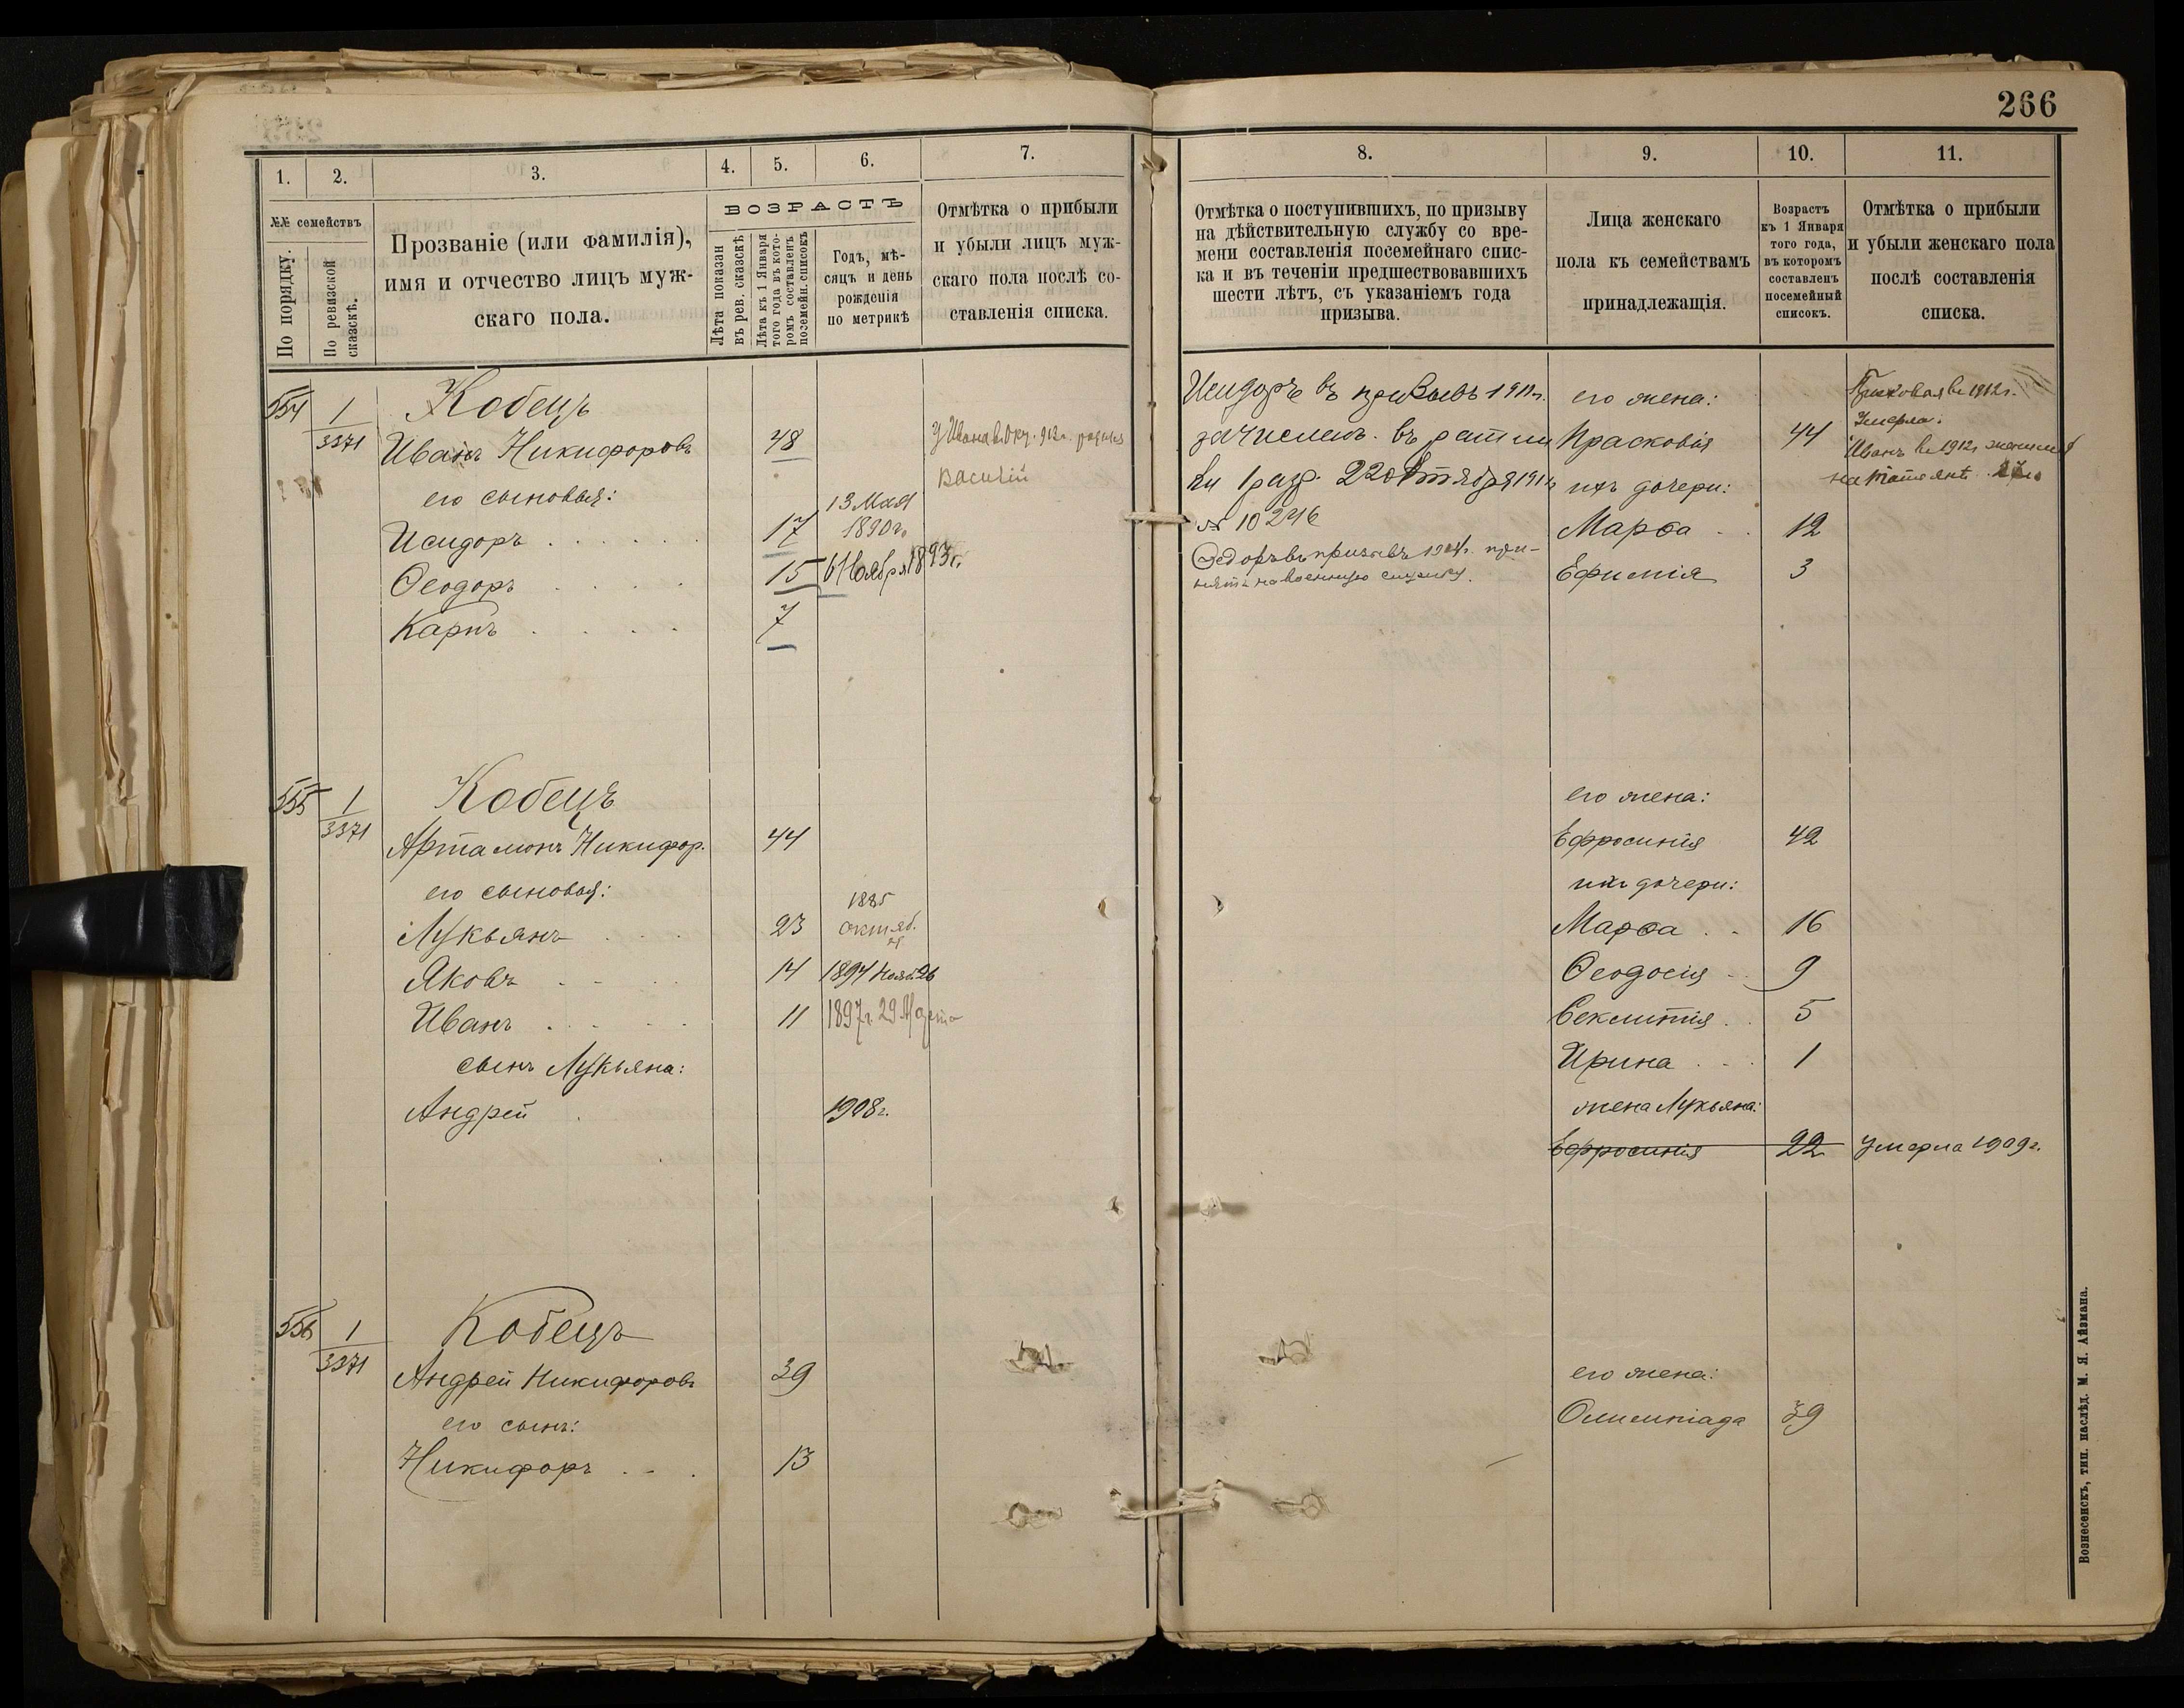 266
1.
2.
3.
4.
5.
6.
7.
№№ семействъ
По порядку.
По ревизской сказскѣ.
Прозваніе (или фамилія),
имя и отчество лицъ муж-
скаго пола.
ВОЗРАСТЪ
Лѣта показан
въ рев. сказскѣ
Лѣта къ 1 Января
того года въ кото-
ромъ составленъ
посемейн. списокъ
Годъ, мѣ-
сяцъ и день
рожденія
по метрикѣ
Отмѣтка о прибыли
и убыли лицъ муж-
скаго пола послѣ со-
ставленія списка.
554 1/3371 Кобецъ
Иванъ Никифоровъ 48
У Ивана в Окт. 912 г. родился
Василій
его сыновья:
Исидоръ 17 13 Мая 1890 г.
Ѳеодоръ 15 6 Ноября 1893 г.
Карпъ 7
555 1/3371 Кобецъ
Артамонъ Никифор. 44
его сыновья:
Лукьянъ 23 1885 октяб.
Яковъ 14 1894 Нояб. 26
Иванъ 11 1897 г. 29 Марта
сынъ Лукьяна:
Андрей 1908 г.
556 1/3371 Кобецъ
Андрей Никифоровъ 39
его сынъ:
Никифоръ 13
8.
9.
10.
11.
Отмѣтка о поступившихъ, по призыву
на дѣйствительную службу со вре-
мени составленія посемейнаго спис-
ка и въ теченіи предшествовавшихъ
шести лѣтъ, съ указаніемъ года
призыва.
Лица женскаго
пола къ семействамъ
принадлежащія.
Возрастъ
къ 1 Января
того года,
въ которомъ
составленъ
посемейный
списокъ.
Отмѣтка о прибыли
и убыли женскаго пола
послѣ составленія
списка.
Исидоръ въ призывъ 1911 г.
зачисленъ въ ратни
ки 1 разр. 22 Октября 191
№ 10246
Ѳедоръ въ призывъ 1914 г. при-
нятъ на военную службу.
его жена:
Прасковія 44
въ 1912 г.
Умерла.
Иванъ въ 1912 г. женился
на Татьянѣ
ихъ дочери:
Марѳа 12
Ефимія 3
его жена:
Ефросинія 42
ихъ дочери:
Марѳа 16
Ѳеодосія 9
Секлитія 5
Ирина 1
жена Лукьяна:
Ефросинія 22 умерла 1909 г.
его жена:
Олимпіада 39
Вознесенскъ, тип. наслѣд. М. Я. Айзмана.